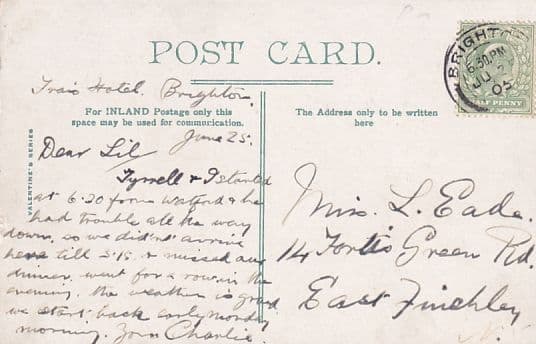 POST CARD.
BRIGHTO
6.30 PM
JU
05
HALF PENNY
Hotel. Brighton.
For INLAND Postage only this
space may be used for communication.
The Address only to be written
here
VALENTINE'S SERIES
June 25.
Dear Lil
Tyrrell & I started
at 6.30 from Watford & he
had trouble all the way
down, so we didn't arrive
here till 3.15. & missed our
dinner, went for a row in the
evening. the weather is grand
we start back early monday
morning. Yours Charlie.
Miss. L. Eade.
14 Fortis Green Rd.
East Finchley
N.